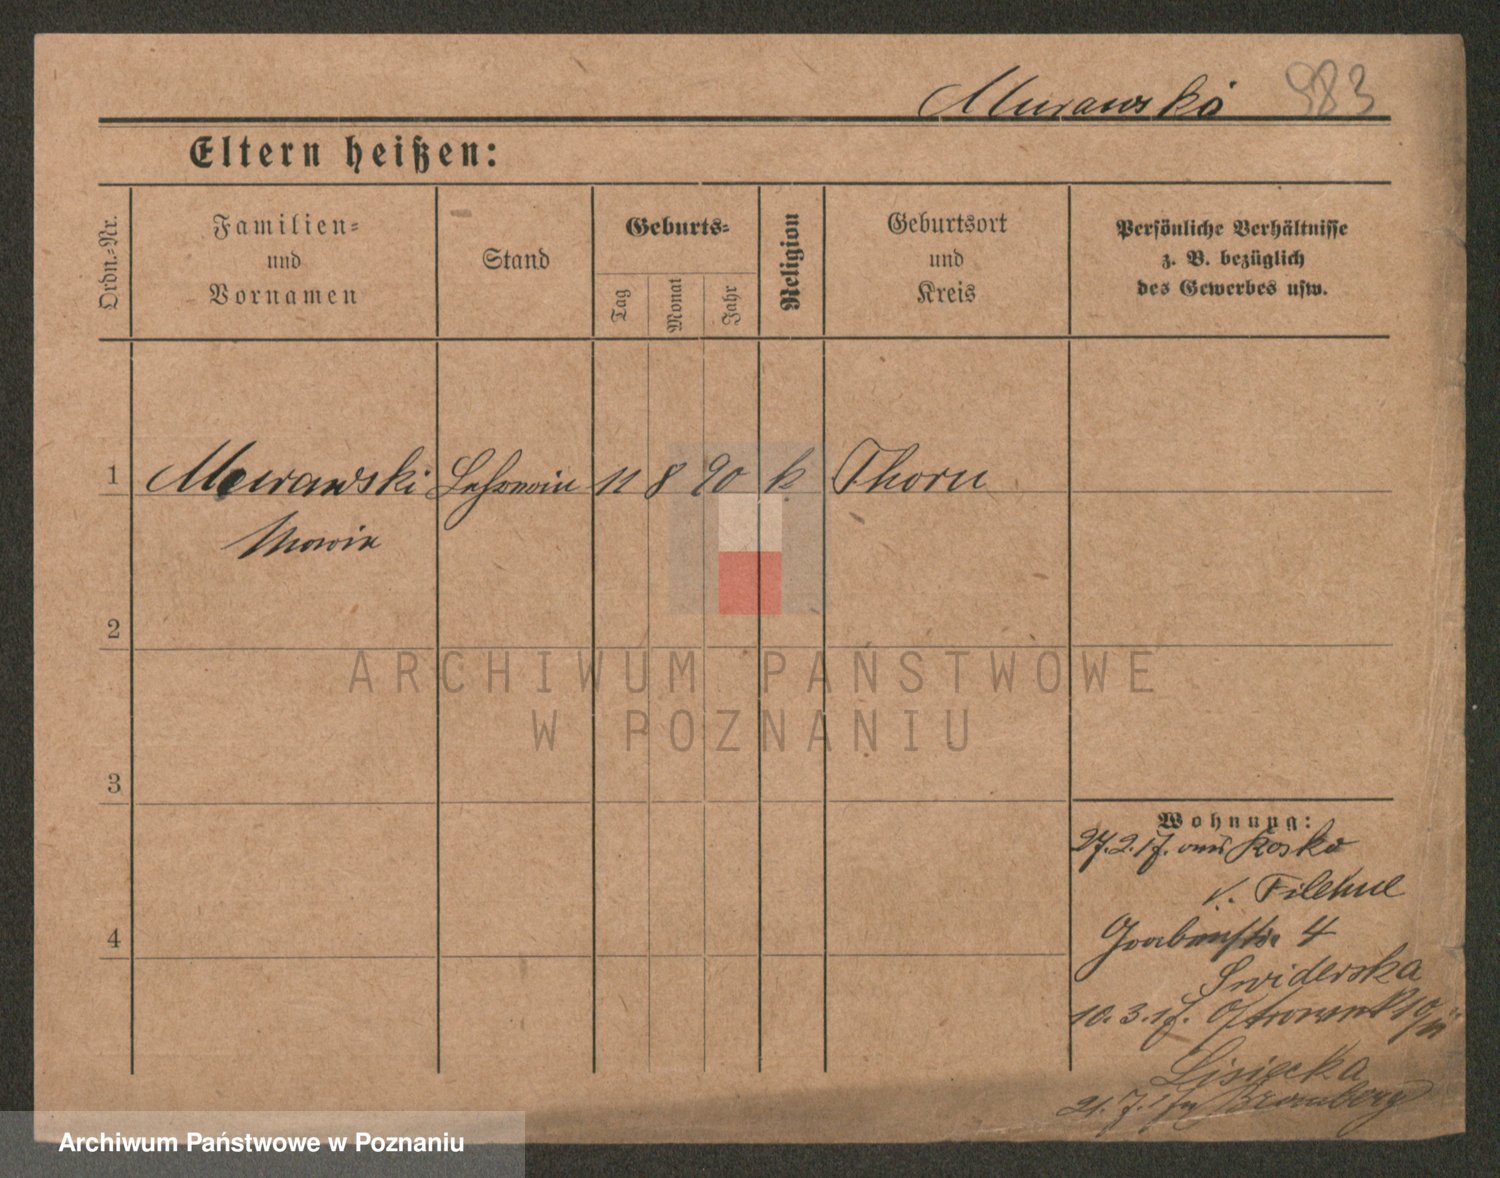 Murawski 983
Eltern heißen:
Ordn.-Nr.
Familien-
und
Vornamen
Stand
Geburts-
Tag
Monat
Jahr
Religion
Geburtsort
und
Kreis
Persönliche Verhältnisse
z. B. bezüglich
des Gewerbes usw.
1 Murawski 11 8 90 k Thorn
2
3
4
ARCHIWUM PAŃSTWOWE
W POZNANIU
Wohnung:
27.2.17. aus Rosko
Filehne
Grabenstr 4
Swiderska
10.3.17.
Lisiecka
21.7.17 Bromberg
Archiwum Państwowe w Poznaniu